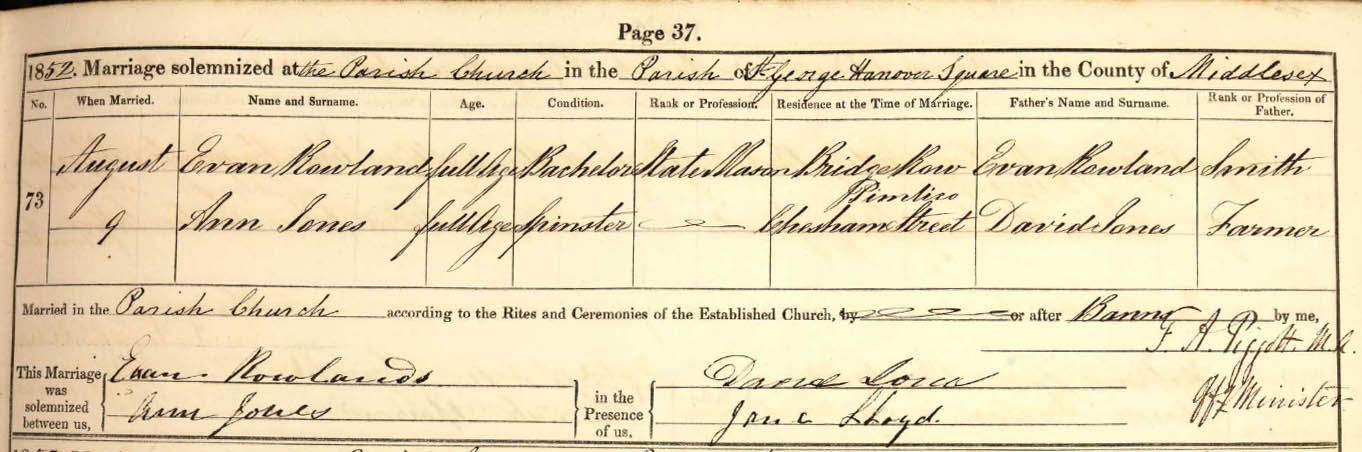 Page 37.
1852. Marriage solemnized at the Parish Church in the Parish of St George Hanover Square in the County of Middlesex
No. When Married. Name and Surname. Age. Condition. Rank or Profession. Residence at the Time of Marriage. Father's Name and Surname. Rank or Profession of Father.
73 August Evan Rowland full Age Bachelor Mason Bridge Row Evan Rowland Smith
Pimlico
9 Ann Jones full Age Spinster Chesham Street David Jones Farmer
Married in the Parish Church according to the Rites and Ceremonies of the Established Church, by or after Banns by me,
F. A. Piggott. M.A.
This Marriage was solemnized between us, Evan Rowlands in the Presence of us,
Ann Jones Jane Lloyd.
Minister